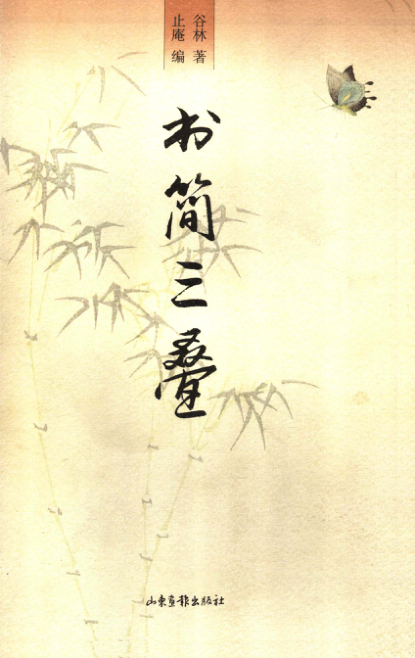 谷林 著
止庵 编
书简三叠
山东画报出版社